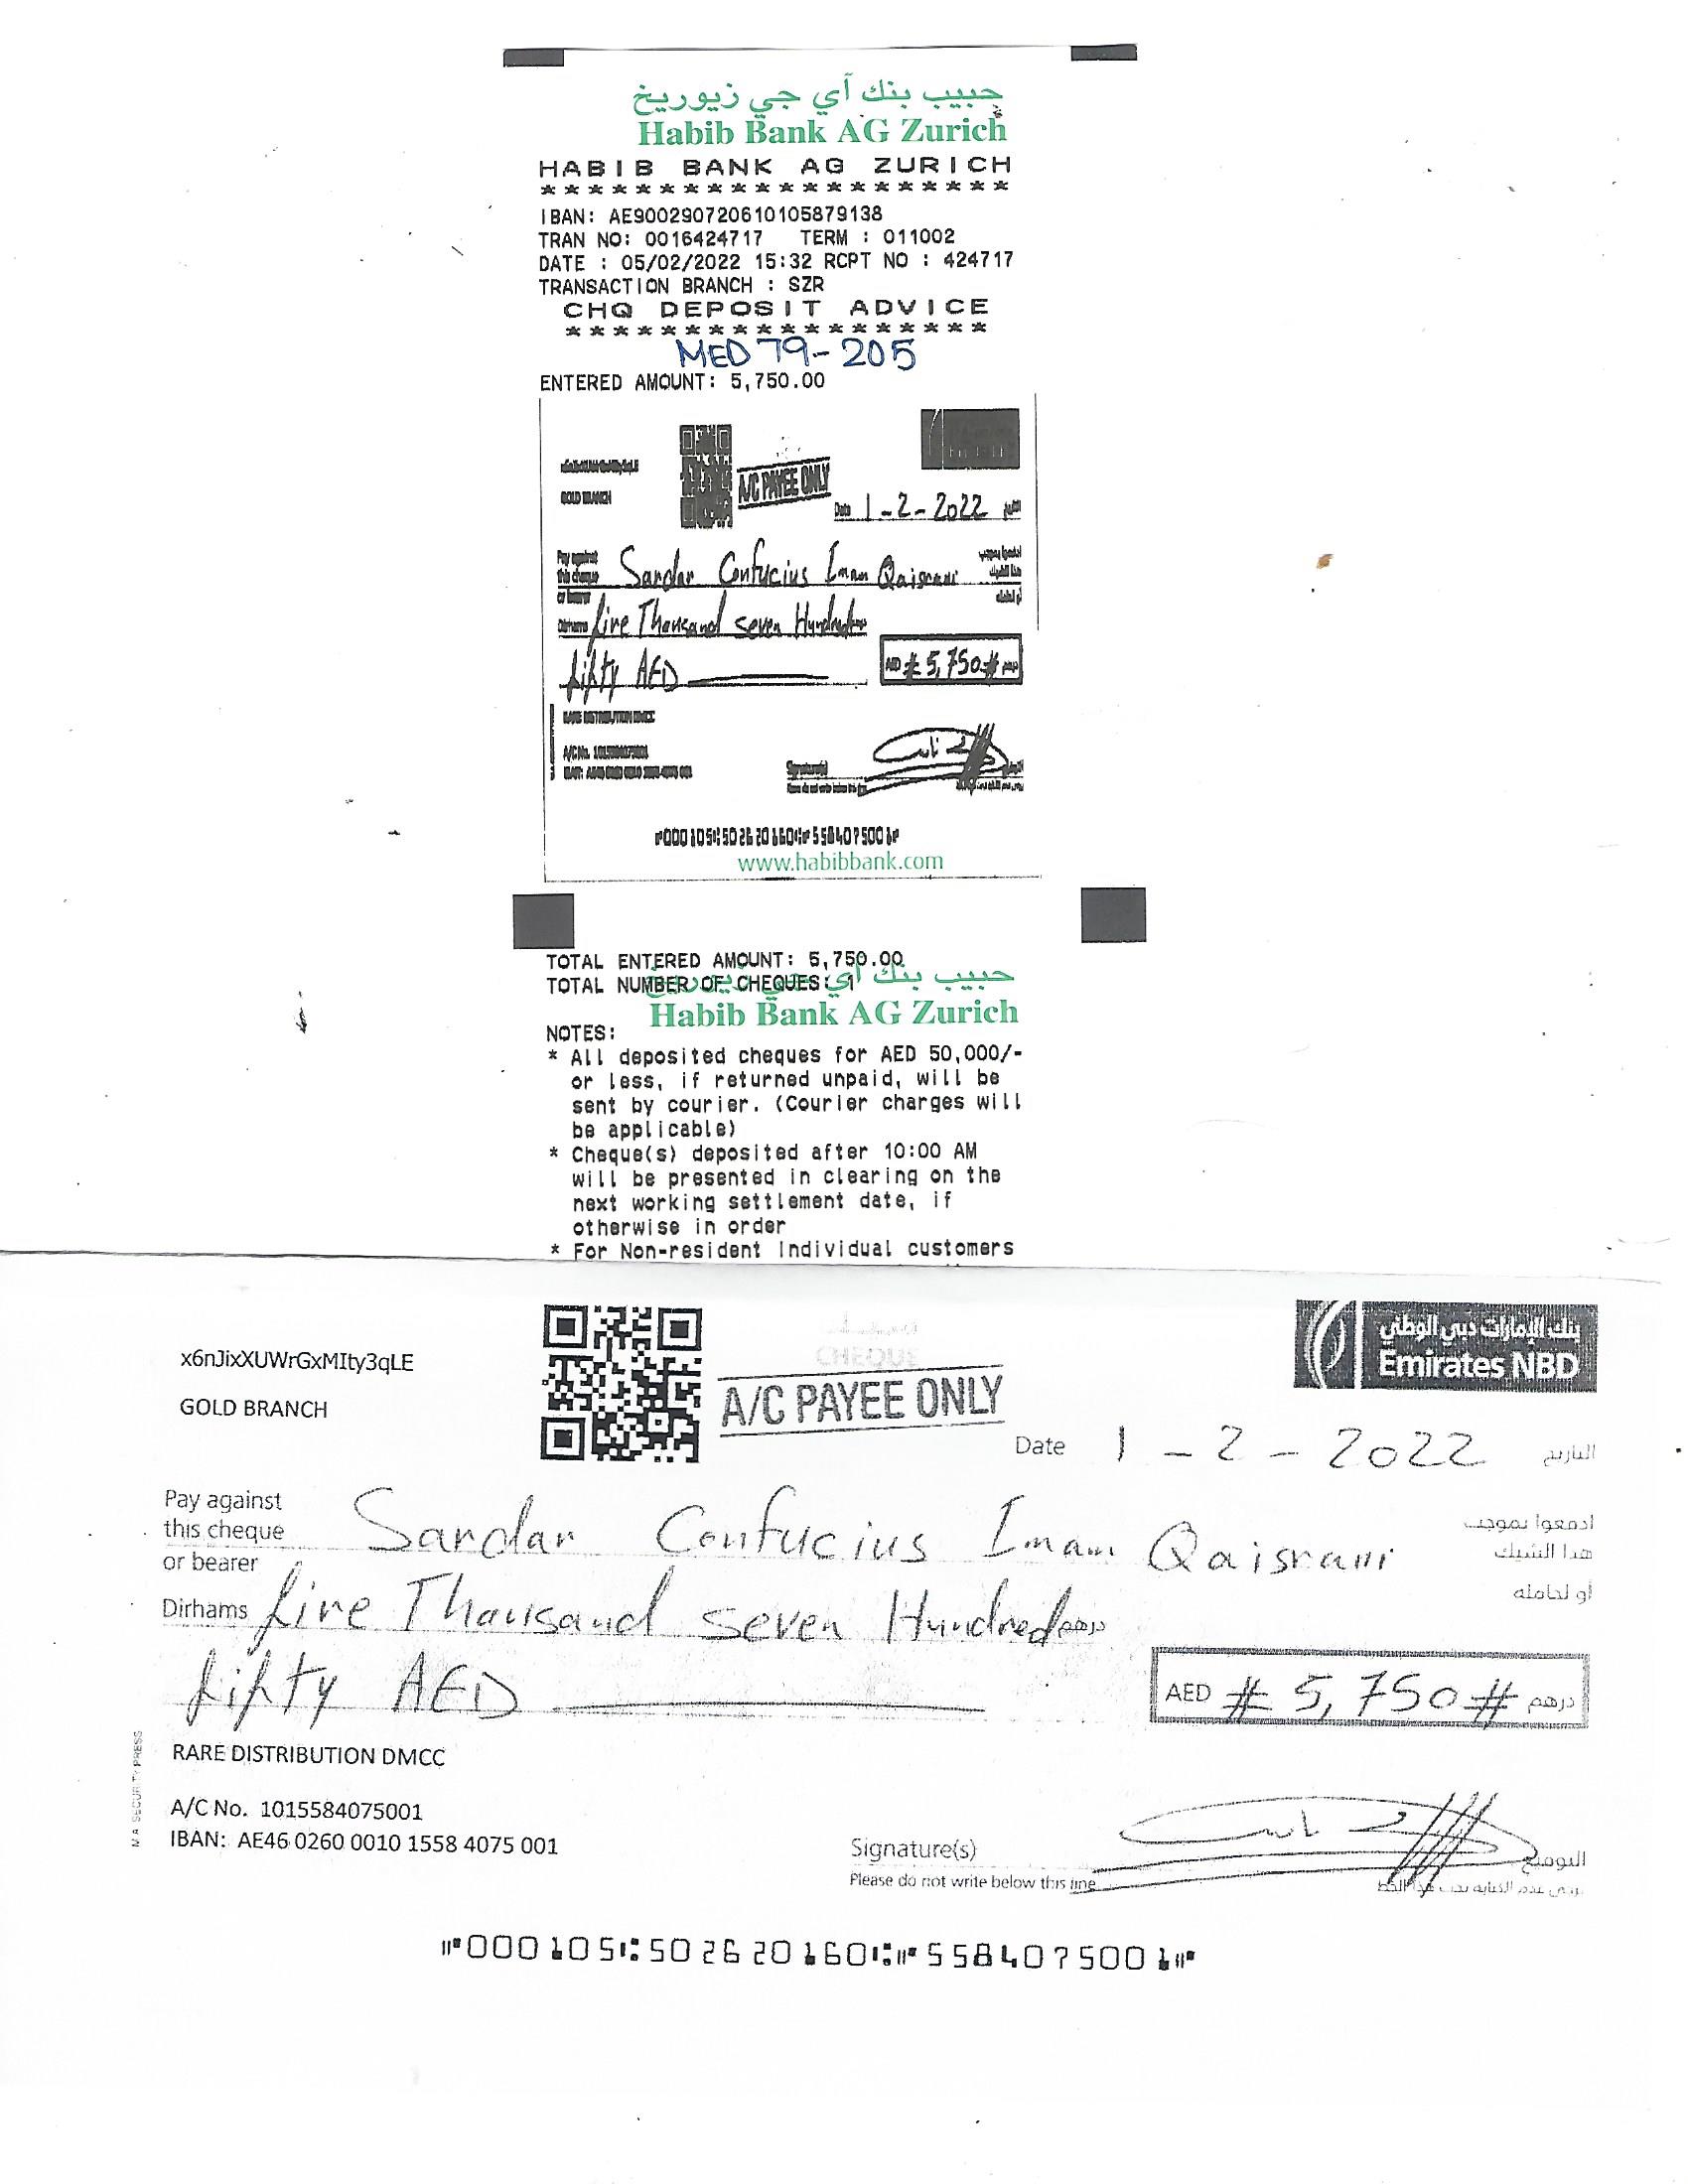 حبيب بنك آي جي زيوريخ
Habib Bank AG Zurich
HABIB BANK AG ZURICH
********************
IBAN: AE900290720610105879138
TRAN NO: 0016424717 TERM : 011002
DATE : 05/02/2022 15:32 RCPT NO : 424717
TRANSACTION BRANCH : SZR
CHQ DEPOSIT ADVICE
******************
MED 79-205
ENTERED AMOUNT: 5,750.00
GOLD BRANCH
A/C PAYEE ONLY
Date 1-2-2022
Pay against
this cheque Sardar Confucius Imam Qaisrani
or bearer
Dirhams five Thousand seven Hundred
fifty AED
AED # 5,750 # درهم
RARE DISTRIBUTION DMCC
A/C No. 1015584075001
Signature(s)
⑈000105⑆502620160⑆⑈5584075001⑈
www.habibbank.com
TOTAL ENTERED AMOUNT: 5,750.00
TOTAL NUMBER OF CHEQUES: 1
حبيب بنك آي جي زيوريخ
Habib Bank AG Zurich
NOTES:
* All deposited cheques for AED 50,000/-
or less, if returned unpaid, will be
sent by courier. (Courier charges will
be applicable)
* Cheque(s) deposited after 10:00 AM
will be presented in clearing on the
next working settlement date, if
otherwise in order
* For Non-resident Individual customers
x6nJixXUWrGxMIty3qLE
GOLD BRANCH
CHEQUE
A/C PAYEE ONLY
بنك الإمارات دبي الوطني
Emirates NBD
Date 1 - 2 - 2022 التاريخ
Pay against ادفعوا بموجب
this cheque Sardar Confucius Imam Qaisrani هذا الشيك
or bearer أو لحامله
Dirhams five Thousand seven Hundred درهم
fifty AED
AED # 5,750 # درهم
RARE DISTRIBUTION DMCC
A/C No. 1015584075001
IBAN: AE46 0260 0010 1558 4075 001
Signature(s) التوقيع
Please do not write below this line يرجى عدم الكتابة تحت هذا الخط
M A SECURITY PRESS
⑈000105⑆502620160⑆⑈5584075001⑈